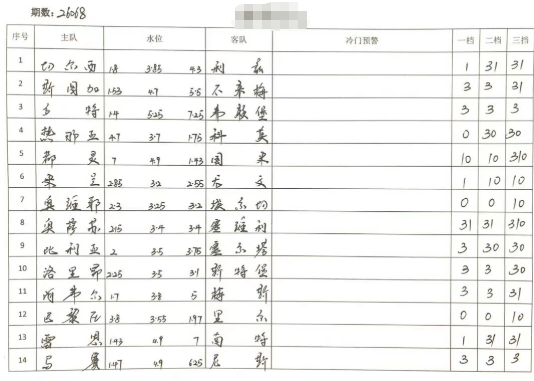 期数：26068
序号 主队 水位 客队 冷门预警 一档 二档 三档
1 切尔西 1.8 3.85 4.3 利兹 1 31 31
2 斯图加 1.53 4.7 5.5 不来梅 3 3 31
3 多特 1.4 5.25 7.25 韦敦堡 3 3 3
4 热那亚 4.7 3.7 1.75 科莫 0 30 30
5 都灵 7 4.9 1.43 国米 10 10 310
6 米兰 2.85 3.2 2.55 尤文 1 10 10
7 奥维耶 2.3 3.25 3.2 埃尔切 0 0 10
8 奥萨苏 2.15 3.4 3.4 塞维利 31 31 310
9 比利亚 2 3.5 3.75 塞尔塔 3 30 30
10 洛里昂 2.25 3.5 3.1 斯特堡 3 3 30
11 阿韦尔 1.7 3.8 5 梅斯 3 3 31
12 巴黎FC 3.8 3.55 1.97 里尔 0 0 10
13 雷恩 1.43 4.9 7 南特 1 31 31
14 马赛 1.47 4.9 6.25 尼斯 3 3 3